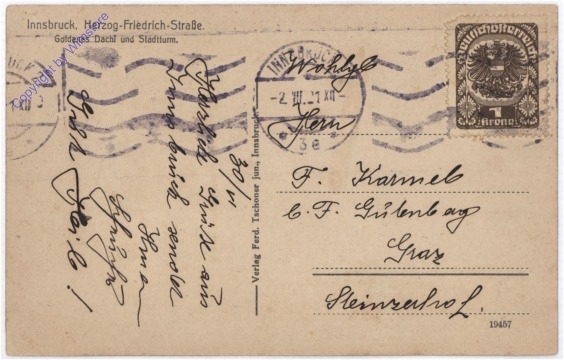 Innsbruck, Herzog-Friedrich-Straße.
Goldenes Dachl und Stadtturm.
Copyright by Wienstere
INNSBRUCK
-2.VII.21 XII-
3e
Deutschösterreich
1
Krone
30/VI
Herzliche Grüße aus
Innsbruck sendet
Gut Heil!
Verlag Ferd. Tschoner jun., Innsbruck
Wohlgb
Herrn
F. Karmel
b. F. Gutenberg
Graz
Steinzerhof.
19457